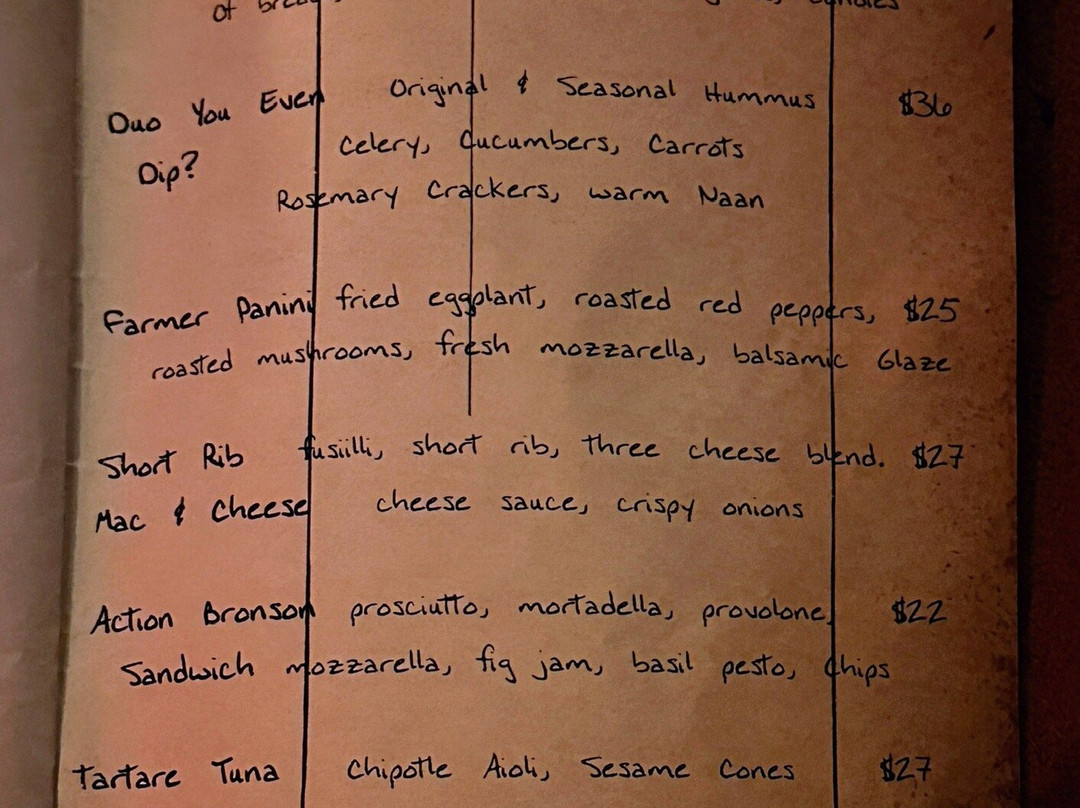 of
Duo You Even Original & Seasonal Hummus $36
Dip? Celery, Cucumbers, Carrots
Rosemary Crackers, warm Naan
Farmer Panini fried eggplant, roasted red peppers, $25
roasted mushrooms, fresh mozzarella, balsamic Glaze
Short Rib fusiilli, short rib, three cheese blend. $27
Mac & Cheese cheese sauce, crispy onions
Action Bronson prosciutto, mortadella, provolone, $22
Sandwich mozzarella, fig jam, basil pesto, Chips
Tartare Tuna Chipotle Aioli, Sesame Cones $27